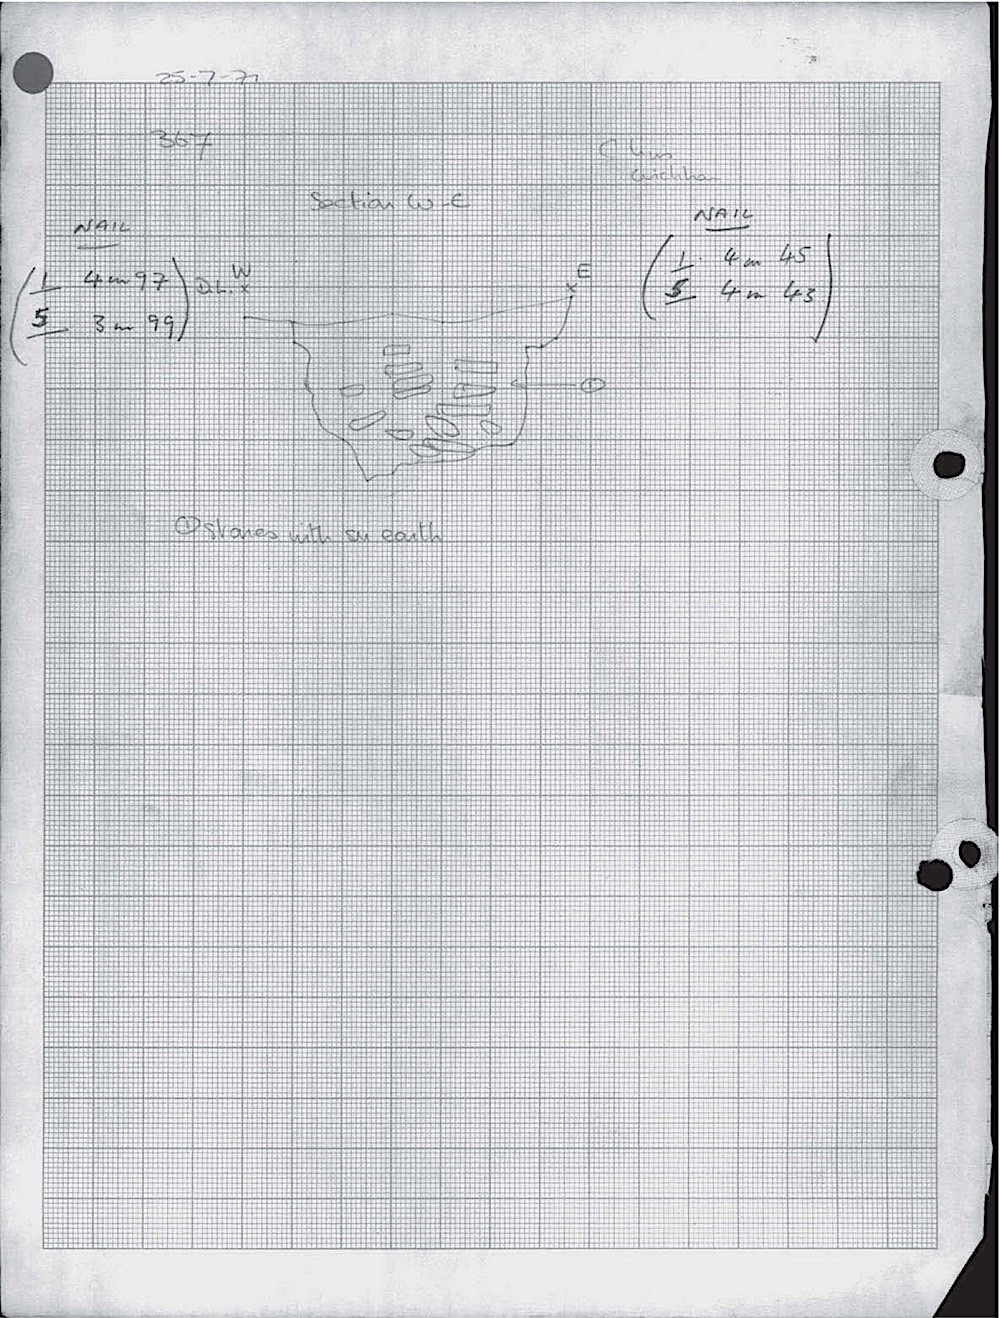 25-7-71
367
Section W-E
NAIL
1 4m 97
5 3m 99
D.L.
W
E
NAIL
1 4m 45
5 4m 43
①
① stones with earth